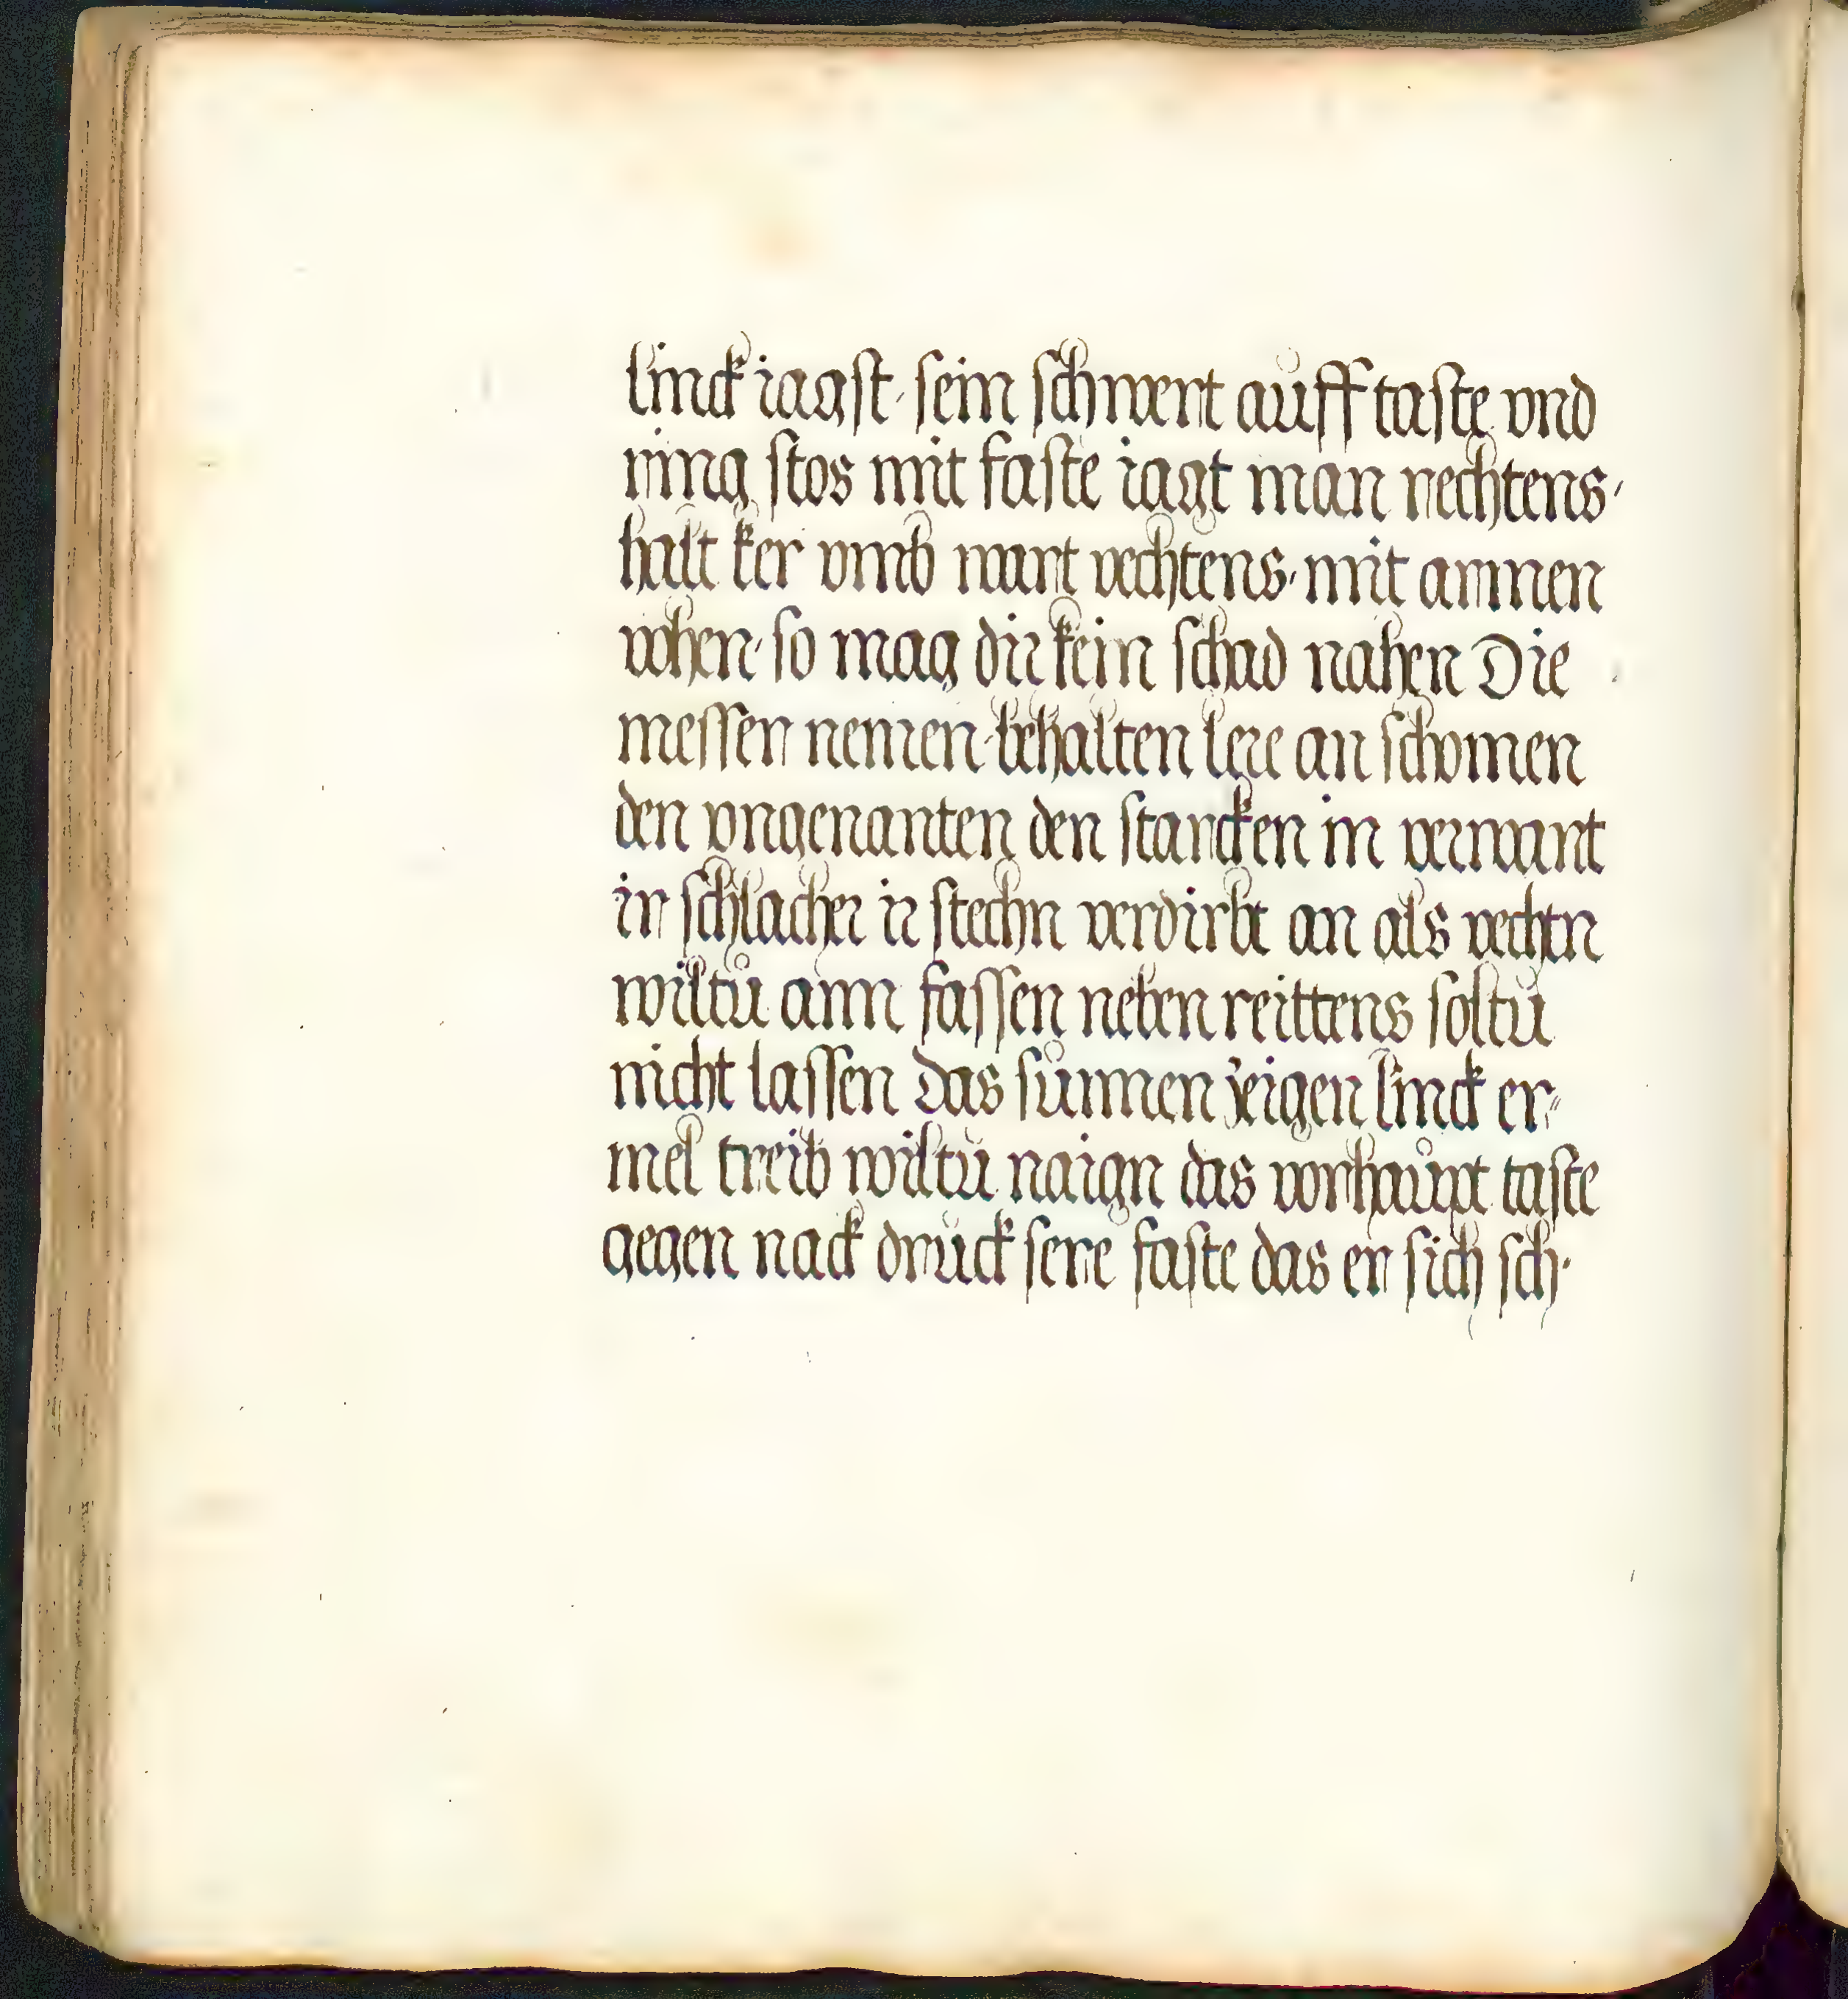 linck iagst · sein schwert auff taste vnd
ring stos mit faste iagt man rechtens ·
halt ker vmb wart vechtens · mit armen
vohen · so mag dir kein schad nahen Die
messer nemen · behalten lere an schomen
den vngenanten den starcken in verwant
in schlacher ir stechn verdirbt an als vechtn
wiltu ann fassen neben reittens soltu
nicht lassen Das sunnen zeigen linck er-
mel treib wiltu naign das vorhaupt taste
gegen nack druck sere faste das er sich sch·